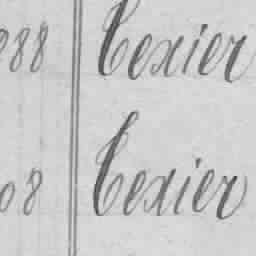 288 Texier
08 Texier